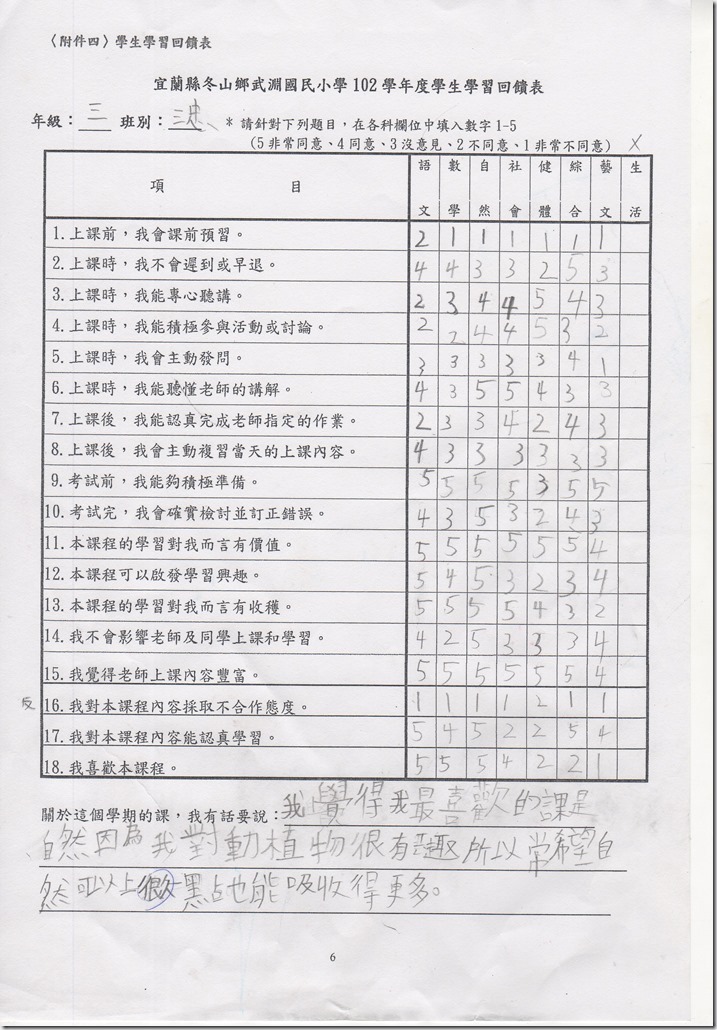 〈附件四〉學生學習回饋表
宜蘭縣冬山鄉武淵國民小學 102 學年度學生學習回饋表
年級：三 班別：三忠 * 請針對下列題目，在各科欄位中填入數字 1-5
(5 非常同意、4 同意、3 沒意見、2 不同意、1 非常不同意) X
項 目 語文 數學 自然 社會 健體 綜合 藝文 生活
1.上課前，我會課前預習。 2 1 1 1 1 1 1
2.上課時，我不會遲到或早退。 4 4 3 3 2 5 3
3.上課時，我能專心聽講。 2 3 4 4 5 4 3
4.上課時，我能積極參與活動或討論。 2 2 4 4 5 3 2
5.上課時，我會主動發問。 3 3 3 3 3 4 1
6.上課時，我能聽懂老師的講解。 4 3 5 5 4 3 3
7.上課後，我能認真完成老師指定的作業。 2 3 3 4 2 4 3
8.上課後，我會主動複習當天的上課內容。 4 3 3 3 3 3 3
9.考試前，我能夠積極準備。 5 5 5 5 3 5 5
10.考試完，我會確實檢討並訂正錯誤。 4 3 5 3 2 4 3
11.本課程的學習對我而言有價值。 5 5 5 5 5 5 4
12.本課程可以啟發學習興趣。 5 4 5 3 2 3 4
13.本課程的學習對我而言有收穫。 5 5 5 5 4 3 2
14.我不會影響老師及同學上課和學習。 4 2 5 3 3 3 4
15.我覺得老師上課內容豐富。 5 5 5 5 5 5 4
反 16.我對本課程內容採取不合作態度。 1 1 1 1 2 1 1
17.我對本課程內容能認真學習。 5 4 5 2 2 5 4
18.我喜歡本課程。 5 5 5 4 2 2 1
關於這個學期的課，我有話要說：我覺得我最喜歡的課是
自然因為我對動植物很有趣所以常希望自
然可以上很久點也能吸收得更多。
6